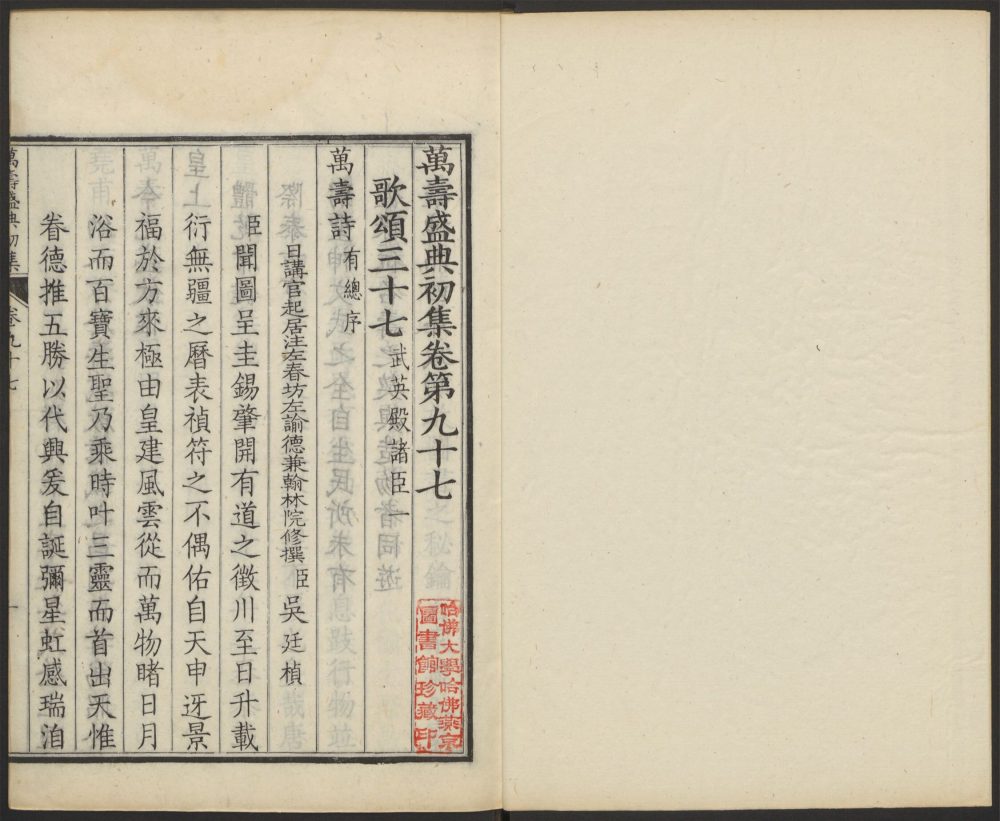 萬壽盛典初集卷第九十七
歌頌三十七 武英殿諸臣一
萬壽詩 有總序
日講官起居注左春坊左諭德兼翰林院修撰臣吳廷楨
臣聞圖呈圭錫肇開有道之徵川至日升載
衍無疆之曆表禎符之不偶佑自天申迓景
福於方來極由皇建風雲從而萬物睹日月
浴而百寶生聖乃乘時叶三靈而首出天惟
眷德推五勝以代興爰自誕彌星虹感瑞洎
萬壽盛典初集 卷九十七 一
哈佛大學哈佛燕京
圖書館珍藏印